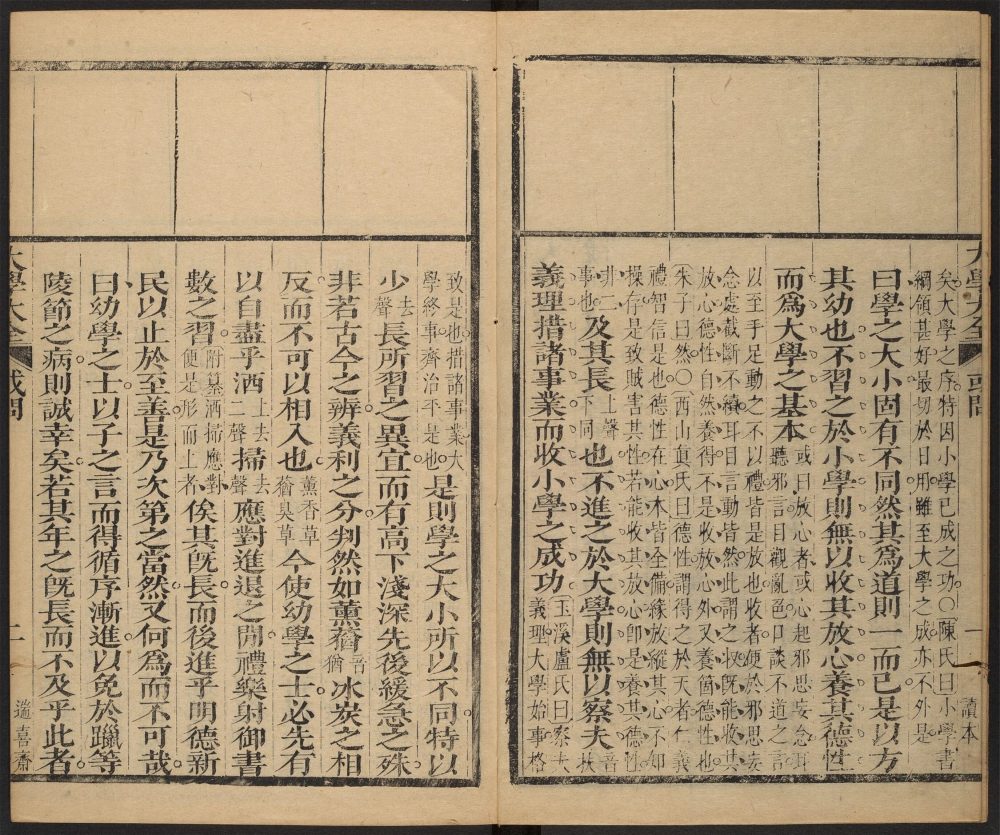 大學大全 或問 一 讀本
矣大學之序特因小學已成之功○陳氏曰小學書
綱領甚好最切於日用雖至大學之成亦不外是
曰學之大小固有不同然其爲道則一而已是以方
其幼也不習之於小學則無以收其放心養其德性
而爲大學之基本或曰放心者或心起邪思妄念耳聽邪言目觀亂色口談不道之言
以至手足動之不以禮皆是放也收者便於邪思妄
念處截斷不續耳目言動皆然此謂之收既能收其
放心德性自然養得不是收放心外又養箇德性也
朱子曰然○西山眞氏曰德性謂得之於天者仁義
禮智信是也德性在心本皆全備緣放縱其心不知
操存是致賊害其性若能收其放心卽是養其德性
非二事也及其長上聲下同也不進之於大學則無以察夫音扶
義理措諸事業而收小學之成功玉溪盧氏曰察夫義理大學始事格
致是也措諸事業大學終事齊治平是也是則學之大小所以不同特以
少去聲長所習之異宜而有高下淺深先後緩急之殊
非若古今之辨義利之分判然如薰蕕音猶冰炭之相
反而不可以相入也薰香草蕕臭草今使幼學之士必先有
以自盡乎洒上去二聲掃去聲應對進退之閒禮樂射御書
數之習附纂洒掃應對便是形而上者俟其旣長而後進乎明德新
民以止於至善是乃次第之當然又何爲而不可哉
曰幼學之士以子之言而得循序漸進以免於躐等
陵節之病則誠幸矣若其年之旣長而不及乎此者
大學大全 或問 二 遄喜齋